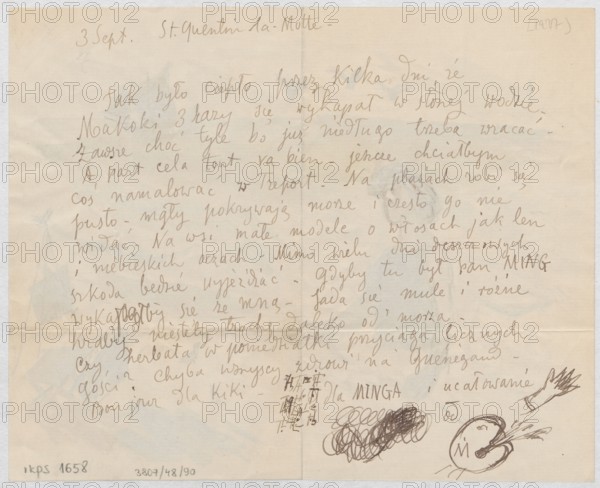 3 Sept. St. Quentin la-Motte -
[1937]
Tak było ciepło przez kilka dni, że
Makoki 3 razy się wykąpał w słonej wodzie
Zawsze choć tyle bo już niedługo trzeba wracać -
A part cela tout va bien - jeszcze chciałbym
coś namalować w Tréport. Na plażach robi się
pusto - mgły pokrywają morze i często go nie
widać. Na wsi małe modele o włosach jak len
i niebieskich oczach - Mimo wielu dni deszczowych
szkoda będzie wyjeżdżać - Gdyby tu był pan MING
wykąpałby się ze mną - jada się mule i różne
niestety trochę daleko od morza -
Czy herbata w poniedziałki przyciąga licznych
gości a chyba wszyscy zdrowi na
Bonjour dla Kiki -
dla MINGA i ucałowanie
M
rkps 1658
3807/48/90
PHOTO12